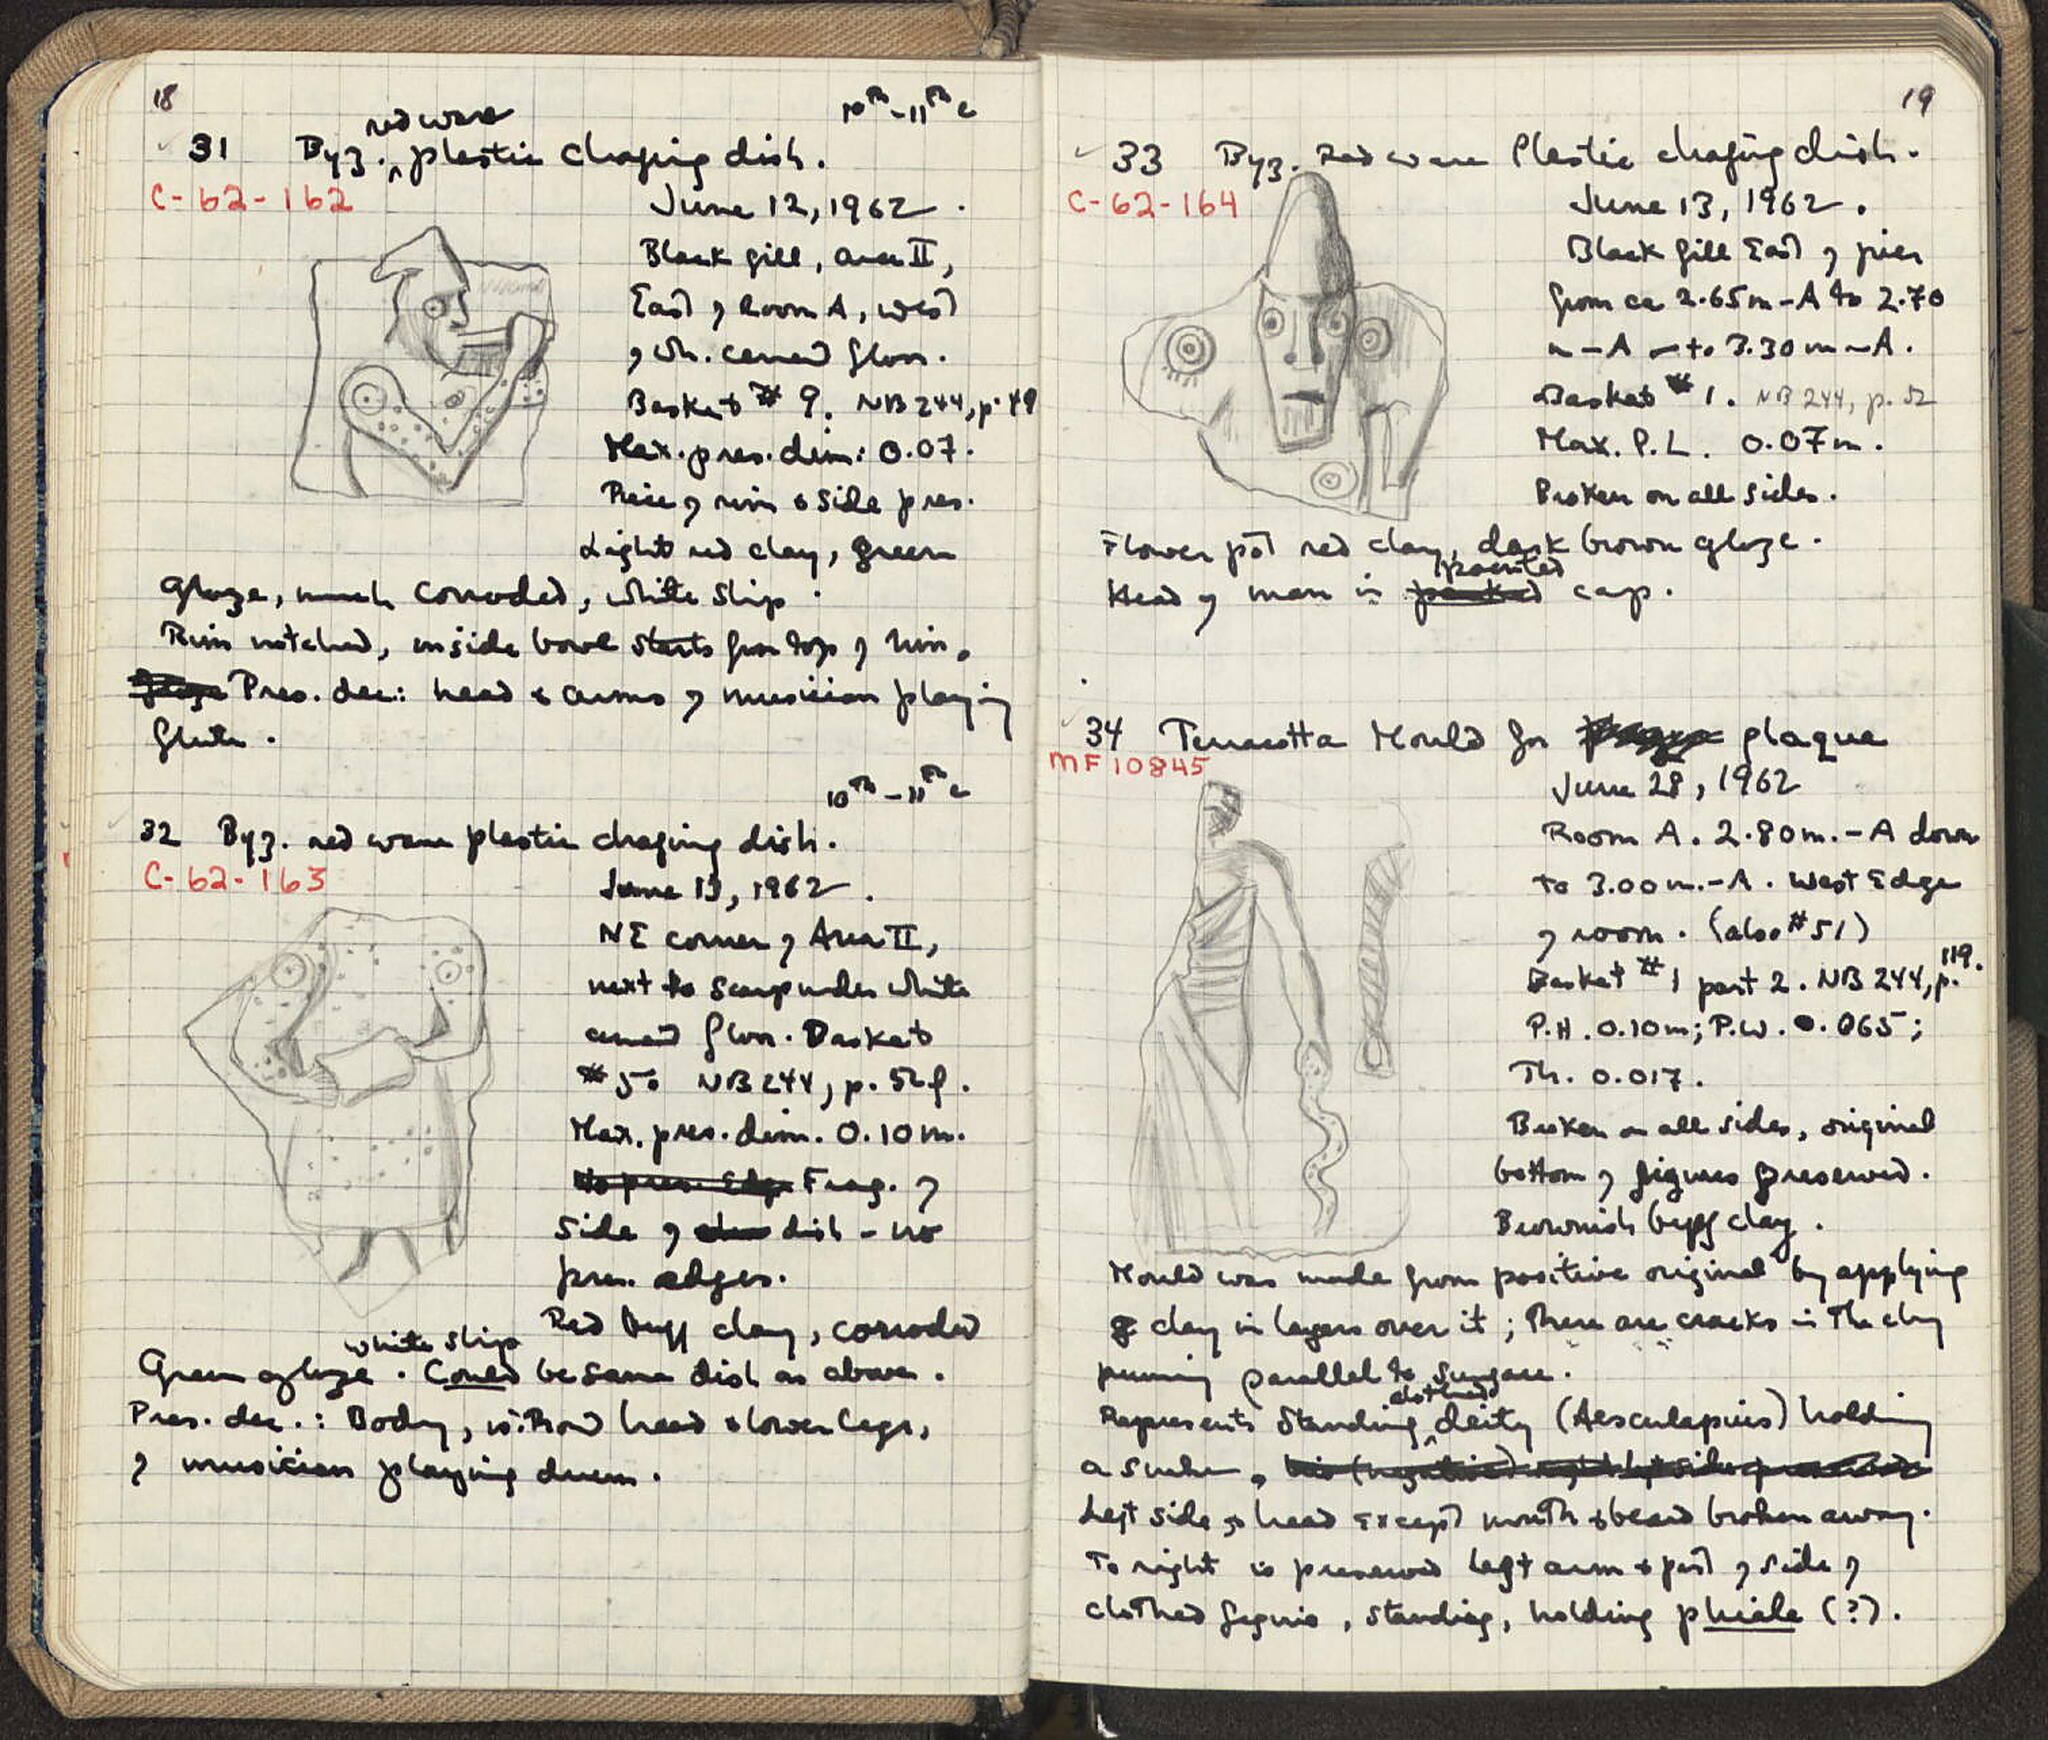 18
10th - 11th c
red ware
31 Byz. ^ plastic chafing dish.
C-62-162
June 12, 1962.
Black fill, Area II,
East of Room A, west
of wh. cement floor.
Basket # 9. NB 244, p. 49
Max. pres. dim: 0.07.
Piece of rim & side pres.
Light red clay, green
glaze, much corroded, white slip.
Rim notched, inside bowl starts from top of rim.
Pres. dec.: head & arms of musician playing
flute.
10th - 11th c
32 Byz. red ware plastic chafing dish.
C-62-163
June 13, 1962.
NE corner of Area II,
next to scarp under white
cement floor. Basket
#50 NB 244, p. 52 f.
Max. pres. dim. 0.10 m.
No pres. edge Frag. of
side of dish - no
pres. edges.
Red buff clay, corroded
white slip
Green glaze. Could be same dish as above.
Pres. dec.: Body, without head & lower legs,
of musician playing drum.
19
33 Byz. Red ware Plastic chafing dish.
C-62-164
June 13, 1962.
Black fill East of pier
from ca 2.65 m - A to 2.70
m - A to 3.30 m - A.
Basket # 1. NB 244, p. 52
Max. P.L. 0.07 m.
Broken on all sides.
Flower pot red clay, dark brown glaze.
pointed
Head of man in peaked cap.
34 Terracotta Mould for plaque
MF 10845
June 28, 1962
Room A. 2.80 m. - A down
to 3.00 m. - A. West Edge
of room. (also #51)
Basket # 1 part 2. NB 244, p. 119.
P.H. 0.10 m; P.W. 0.065;
Th. 0.017.
Broken on all sides, original
bottom of figures preserved.
Brownish buff clay.
Mould was made from positive original by applying
clay in layers over it; there are cracks in the clay
running parallel to surface.
clothed
Represents standing ^ deity (Aesculapius) holding
a snake.
Left side of head except mouth & beard broken away.
To right is preserved left arm & part of side of
clothed figure, standing, holding phiale (?).